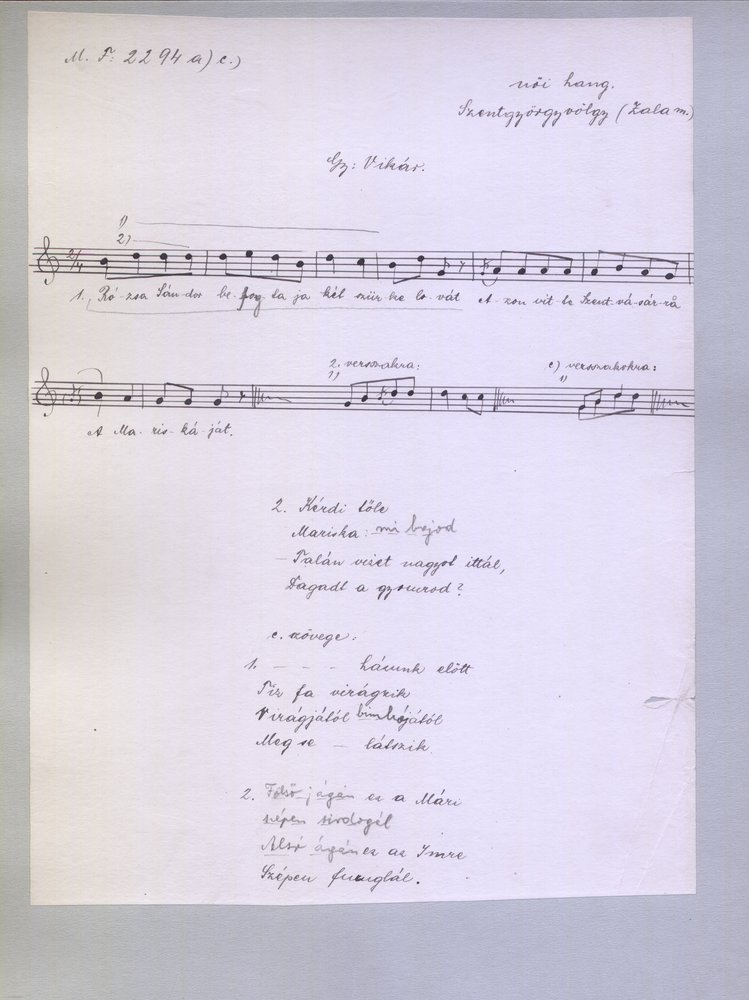 M. F: 2294 a) c.)
női hang.
Szentgyörgyvölgy (Zala m.)
Gy: Vikár.
1)
2)
2/4
1. Ró-zsa Sán-dor be-fog-ta ja két szür-ke lo-vát A-zon vit-te Szent-vá-sár-rå
2. versszakra:
1)
c) versszakokra:
1)
A Ma-ris-ká-ját.
2. Kérdi tőle
Mariska: mi bajod
– Talán vizet nagyot ittál,
Dagadt a gyomrod?
c. szövege:
1. – – – házunk előtt
Tíz fa virágzik
Virágjától bimbójától
Meg se – látszik
2. Fölső jágán ez a Mári
szépen sirdogál
Alsó ágán ez az Imre
Szépen furuglál.